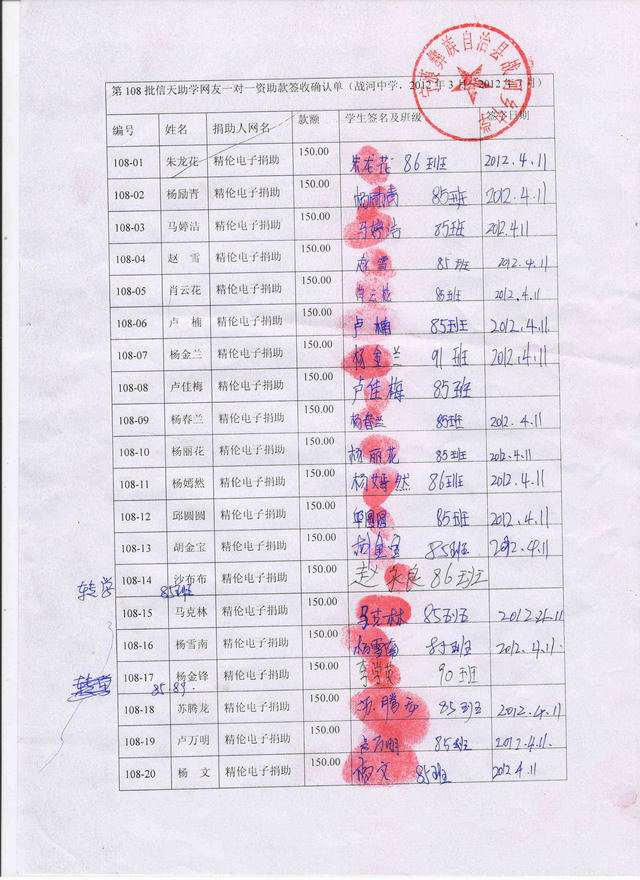 第108批信天助学网友一对一资助款签收确认单（战河中学，2012年3月—2012年7月）
编号 姓名 捐助人网名 款额 学生签名及班级 签名日期
108-01 朱龙花 精伦电子捐助 150.00 86班 2012.4.11
108-02 杨励青 精伦电子捐助 150.00 杨励青 85班 2012.4.11
108-03 马婷洁 精伦电子捐助 150.00 马婷洁 85班 2012.4.11
108-04 赵 雪 精伦电子捐助 150.00 雪 85班 2012.4.11
108-05 肖云花 精伦电子捐助 150.00 肖云花 85班 2012.4.11
108-06 卢 楠 精伦电子捐助 150.00 卢楠 85班 2012.4.11
108-07 杨金兰 精伦电子捐助 150.00 杨金兰 91班 2012.4.11
108-08 卢佳梅 精伦电子捐助 150.00 卢佳梅 85班
108-09 杨春兰 精伦电子捐助 150.00 杨春兰 85班 2012.4.11
108-10 杨丽花 精伦电子捐助 150.00 杨丽花 85班 2012.4.11
108-11 杨嫣然 精伦电子捐助 150.00 杨嫣然 86班 2012.4.11
108-12 邱圆圆 精伦电子捐助 150.00 圆圆 85班 2012.4.11
108-13 胡金宝 精伦电子捐助 150.00 胡金宝 85班 2012.4.11
转学 108-14 沙布布 85班 精伦电子捐助 150.00 赵永良 86班
108-15 马克林 精伦电子捐助 150.00 马克林 85班
108-16 杨雪南 精伦电子捐助 150.00 杨雪南 85班 2012.4.11
108-17 杨金锋 85 89. 精伦电子捐助 150.00 李学英 90班
108-18 苏腾龙 精伦电子捐助 150.00 苏腾龙 85班 2012.4.11
108-19 卢万明 精伦电子捐助 150.00 卢万明 85班 2012.4.11
108-20 杨 文 精伦电子捐助 150.00 杨文 85班 2012.4.11